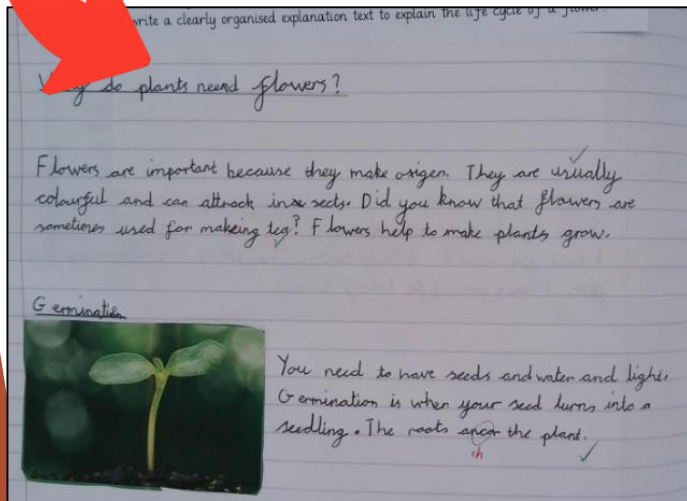 write a clearly organised explanation text to explain the life cycle of a flower
Why do plants neend flowers?
Flowers are important because they make origen. They are usually
colourful and can attrack insects. Did you know that flowers are
sometimes used for makeing teg? Flowers help to make plants grow.
Germination
You need to have seeds and water and light.
Germination is when your seed turns into a
seedling. The roots ancor the plant.
ch